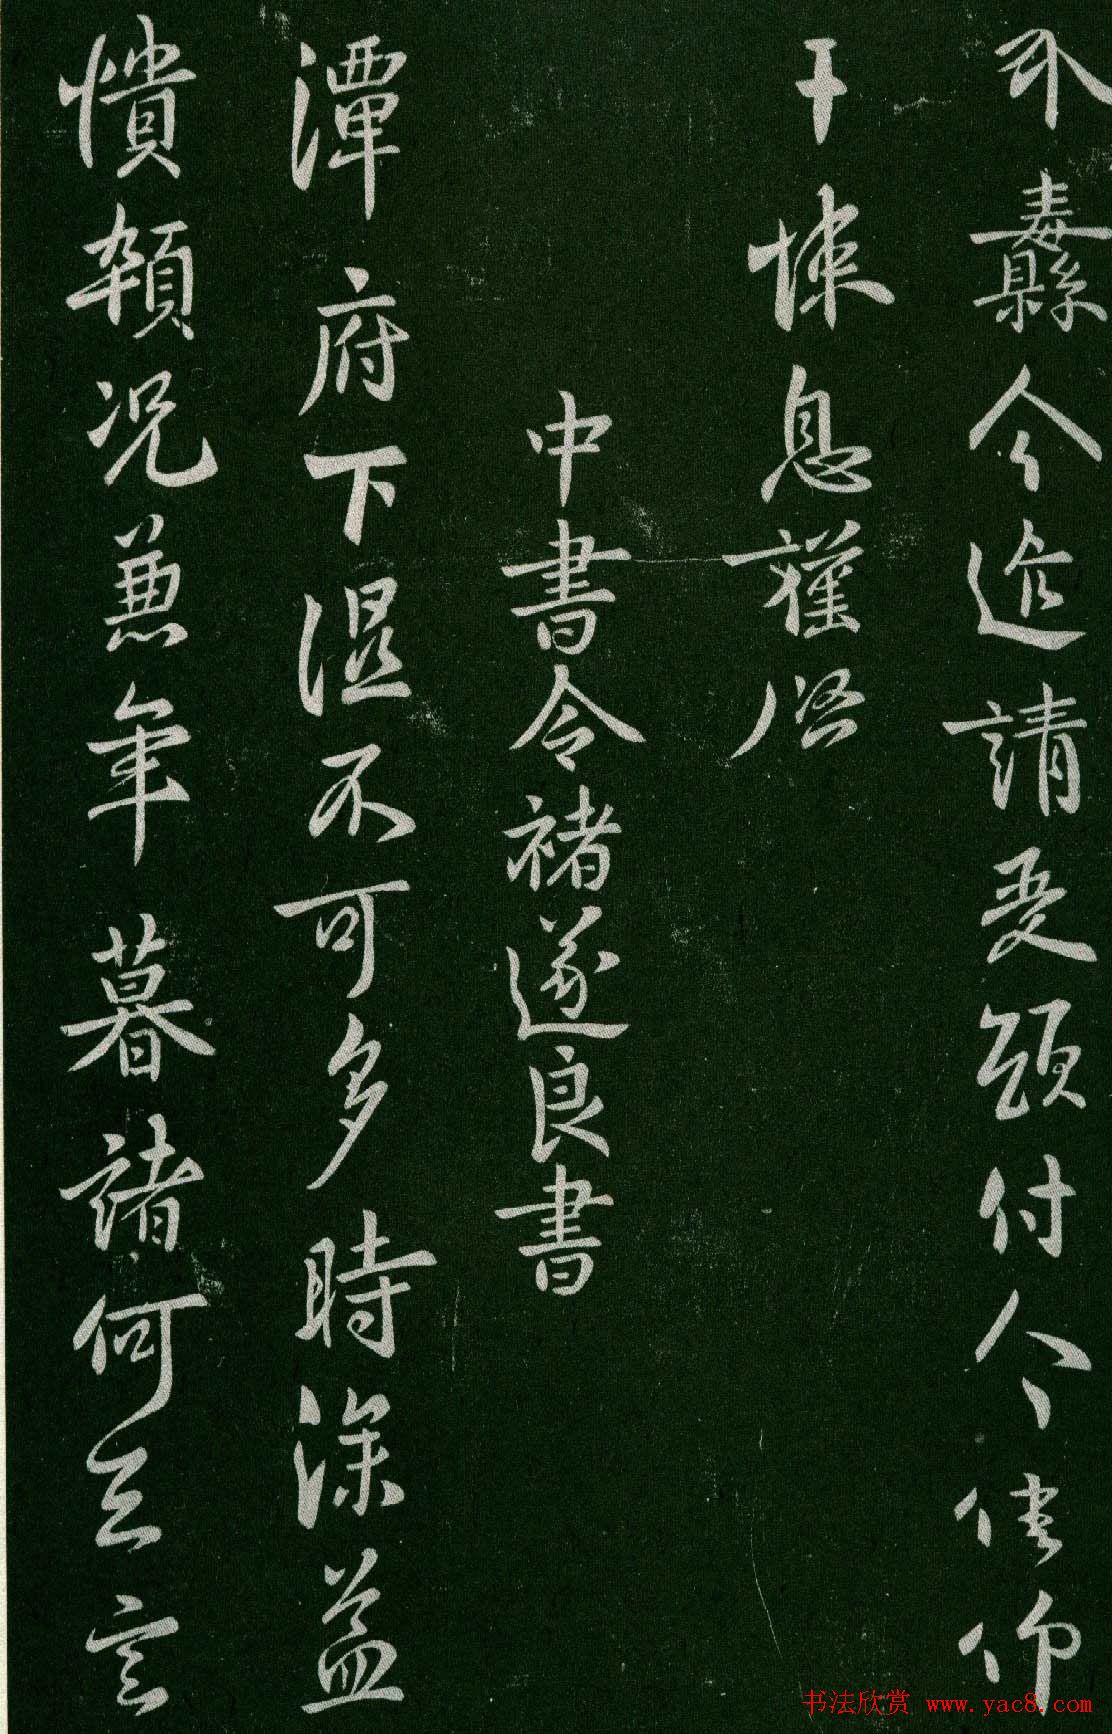 纛今請受領付使仰
干悚息謹啓
中書令褚遂良書
潭府下濕不可多時深益
憒頓況兼年暮諸何足言
书法欣赏 www.yac8.com